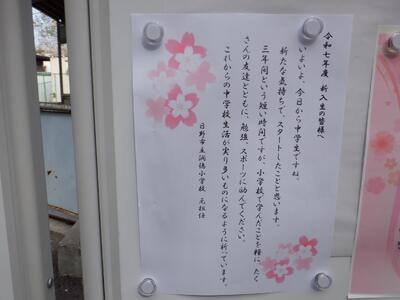 令和七年度 新入生の皆様へ
いよいよ、今日から中学生ですね。
新たな気持ちで、スタートしたことと思います。
三年間という短い時間ですが、小学校で学んだことを糧に、たく
さんの友達とともに、勉強、スポーツに励んでください。
これからの中学校生活が実り多いものになるように祈っています。
日野市立潤徳小学校 元担任